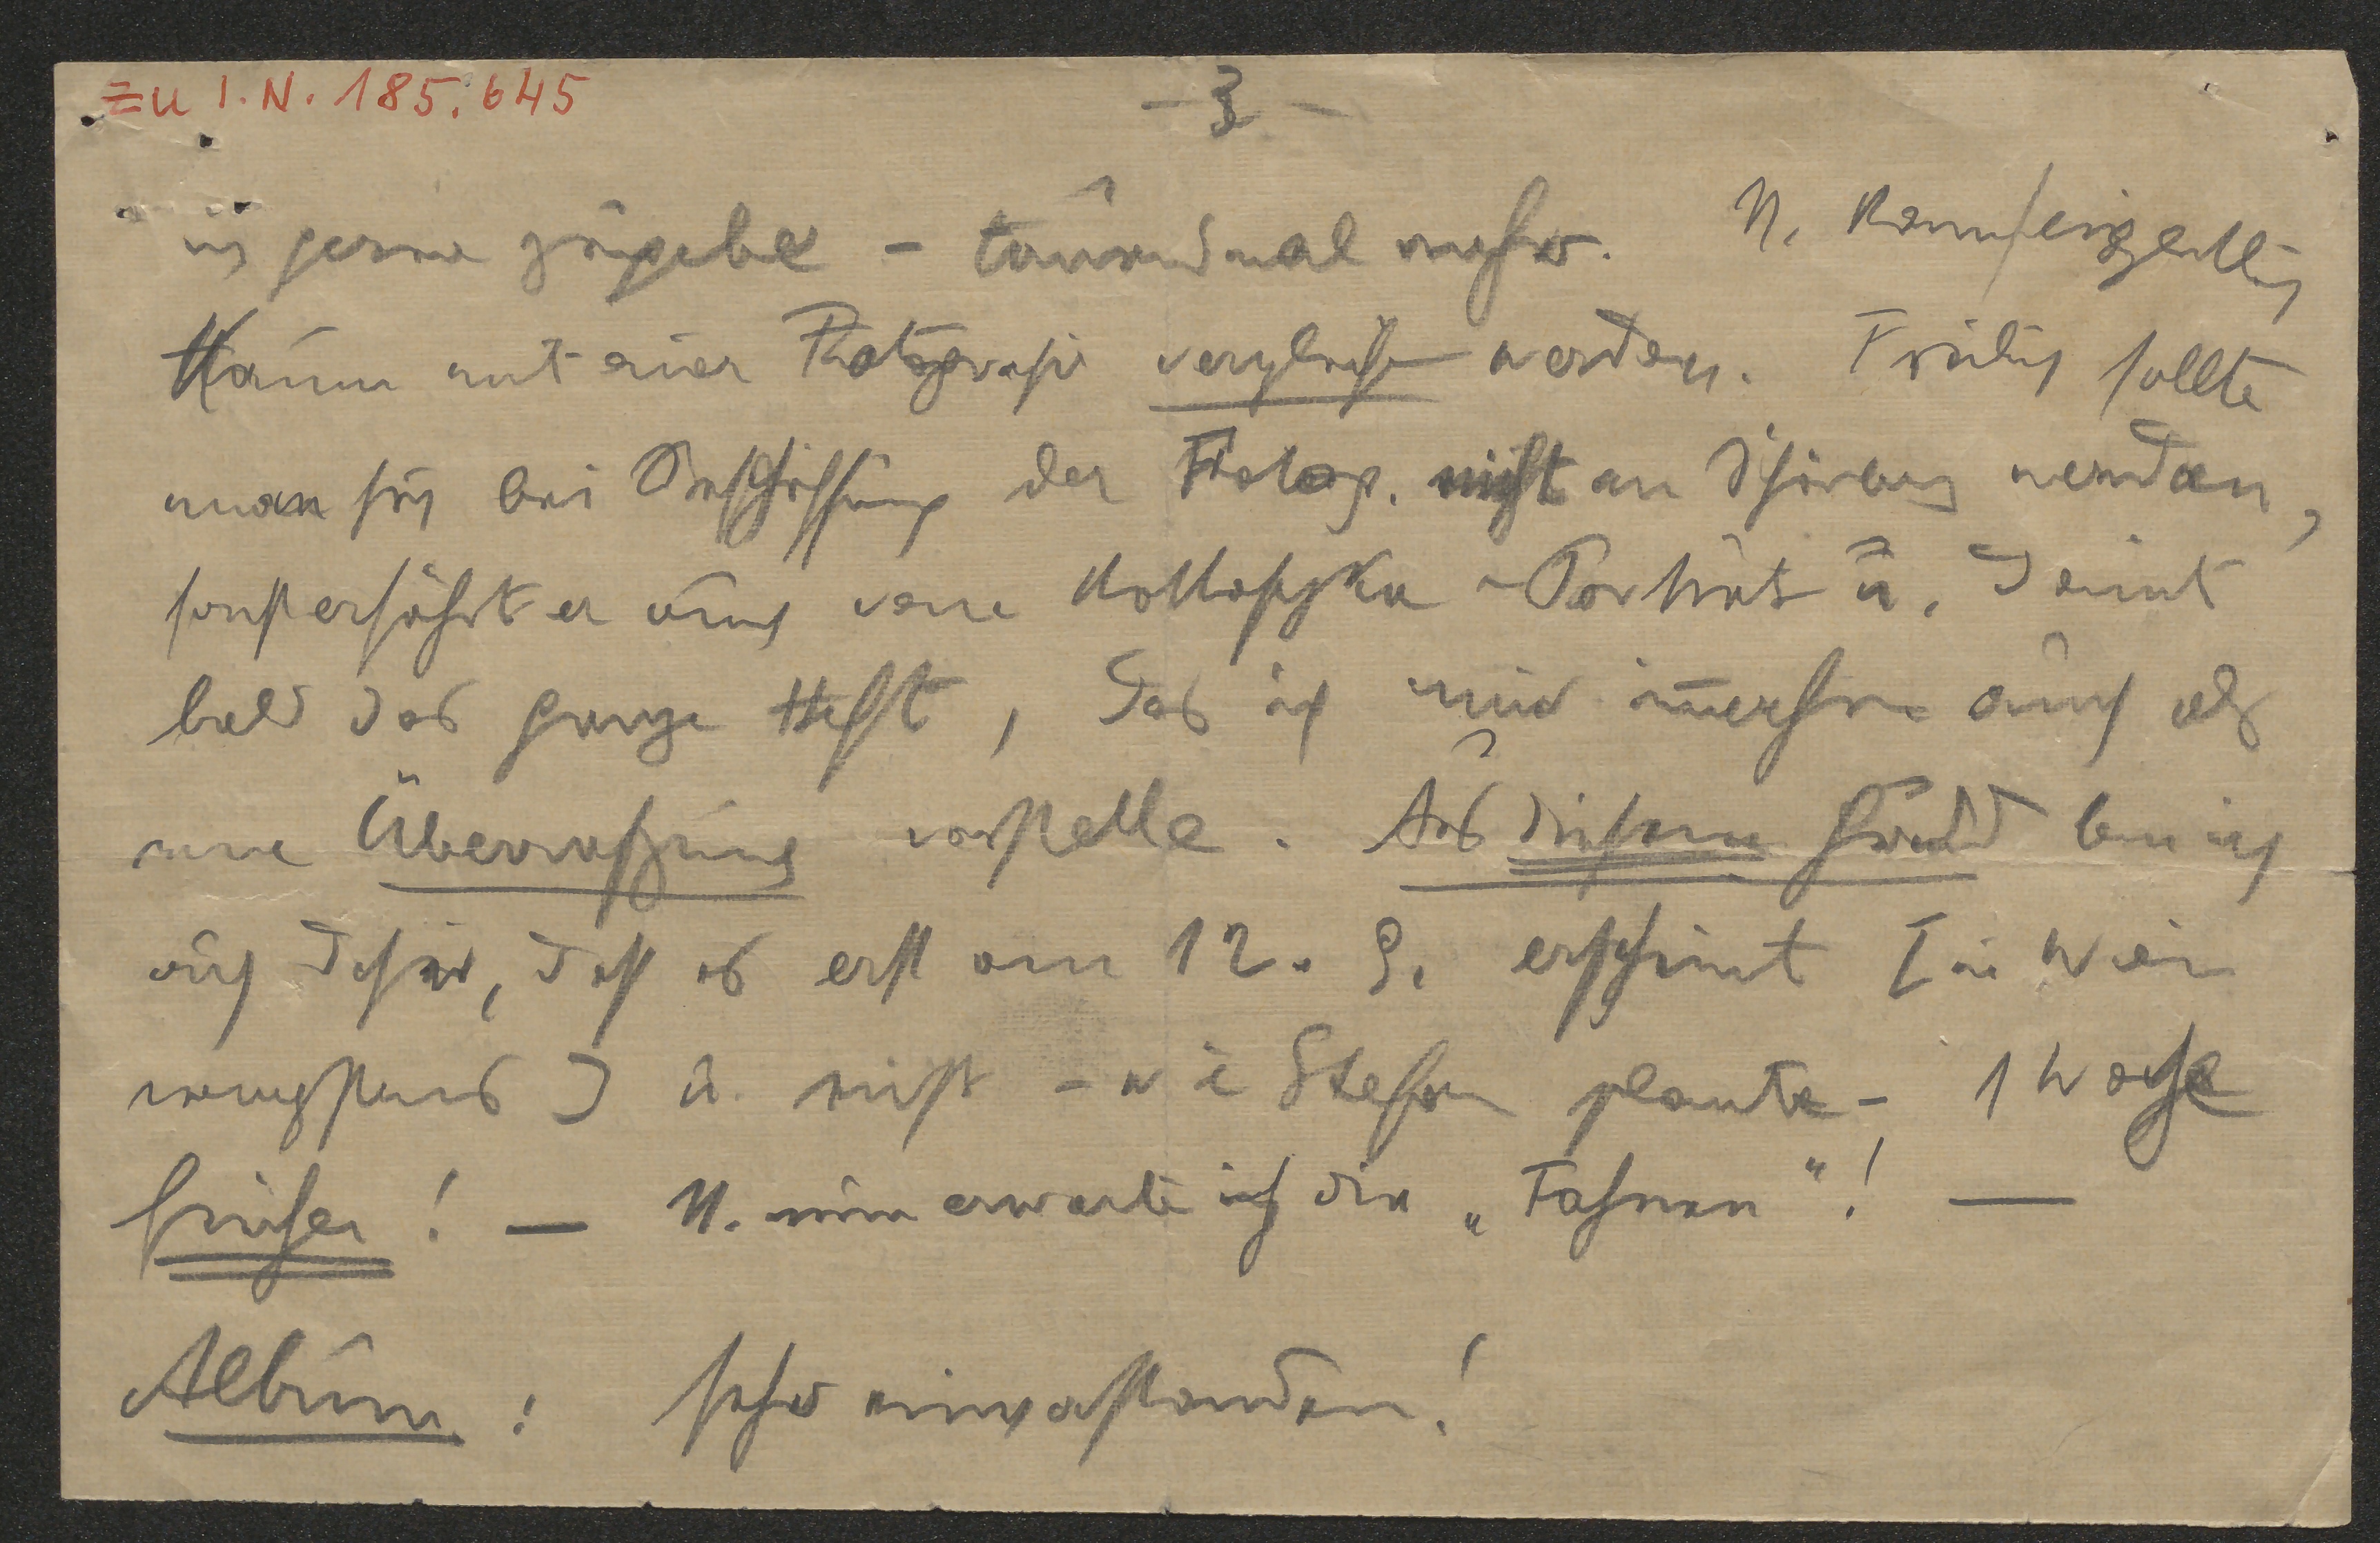 Zu I.N. 185.645
– 3 –
ich gerne zugebe – tausendmal mehr. N. kann eigentlich
kaum mit einer Photografie verglichen werden. Freilich sollte
man sich bei Beschaffung der Photogr. nicht an wenden,
sonst erfährt er auch vom Portrait u. damit
bald das ganze Heft, das ich mir immerhin auch als
eine Überraschung vorstelle. Aus diesem Grund bin ich
auch dafür, daß es erst am 12. 9. erscheint [in Wien
wenigstens] u. nicht – wie Stefan plante – 1 Woche
früher! — N. nun erwarte ich die „Fahnen“! —
Album: sehr einverstanden!